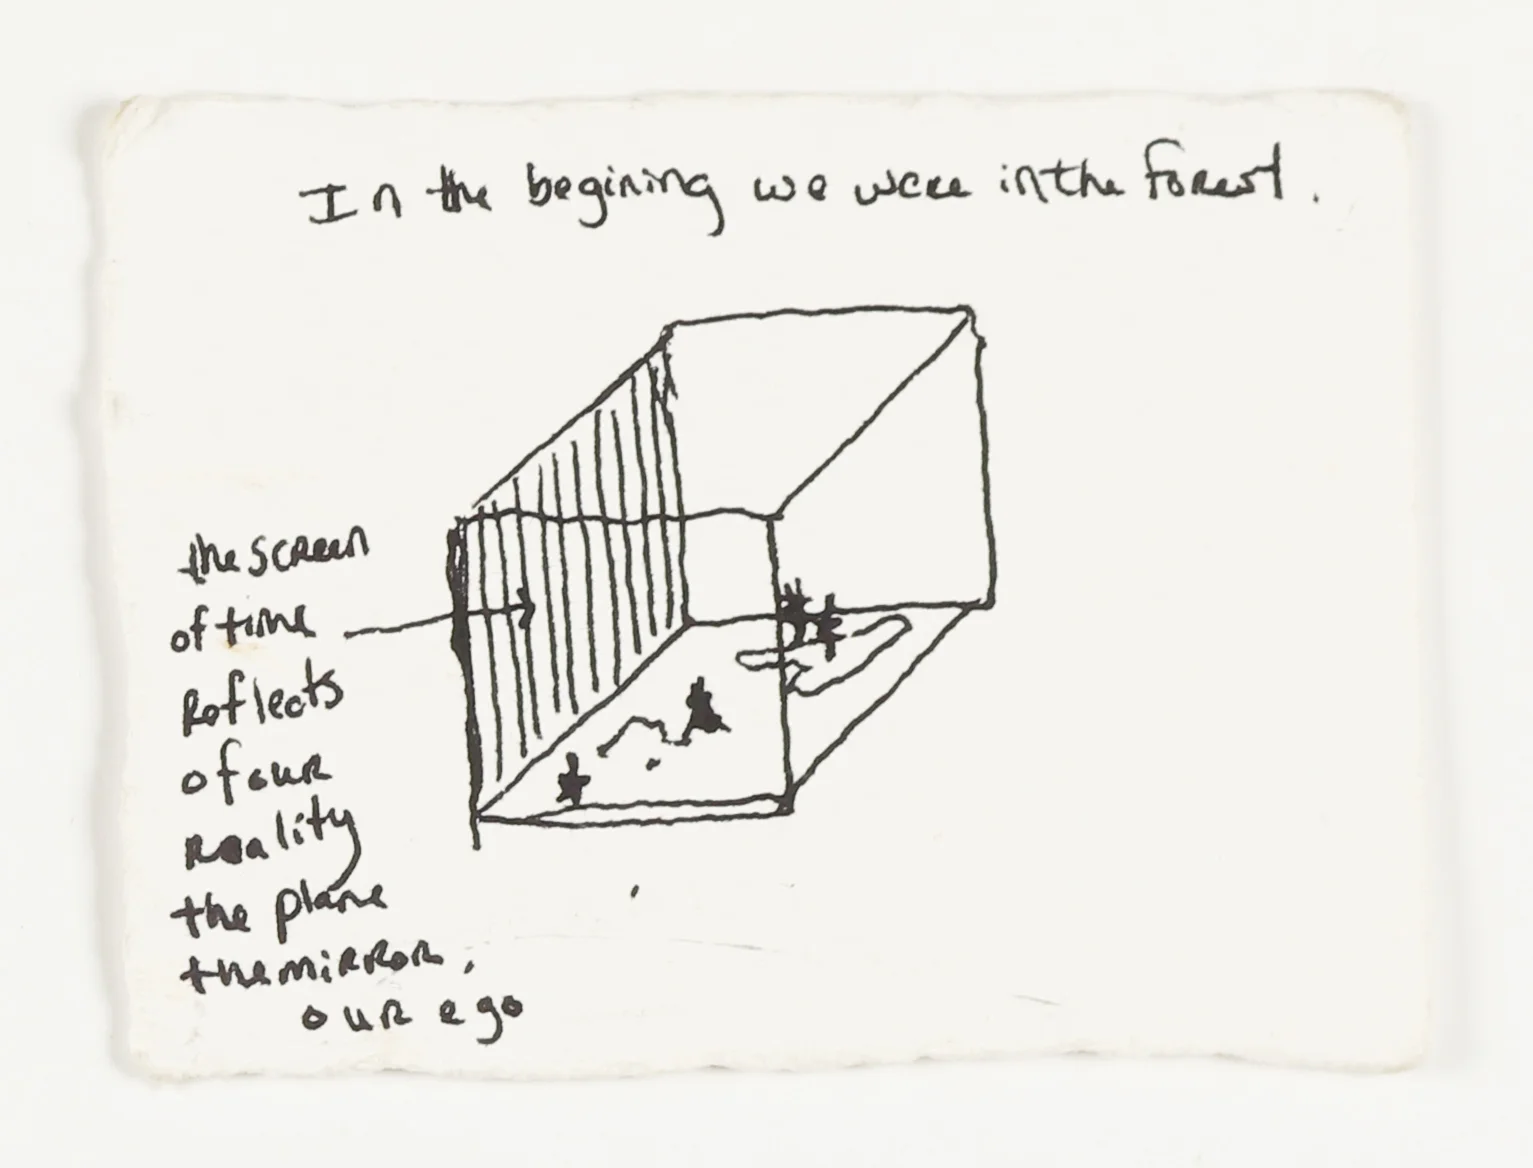 In the begining we were in the forest.
the screen
of time
Reflects
of our
reality
the plane
the mirror,
our ego